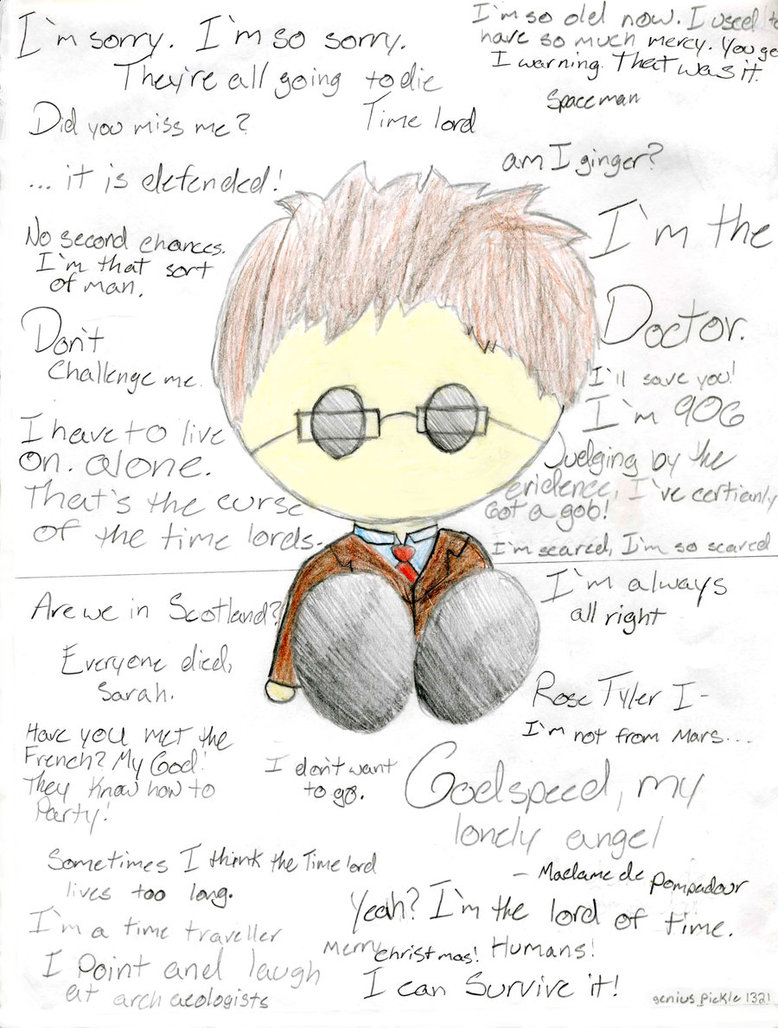 I'm sorry. I'm so sorry.
They're all going to die
Did you miss me?
Time lord
... it is defended!
I'm so old now. I used to
have so much mercy. You get
1 warning. That was it.
Spaceman
am I ginger?
No second chances.
I'm that sort
of man.
I'm the
Doctor.
Don't
Challenge me.
I'll save you!
I'm 906
I have to live
on. alone.
That's the curse
of the time lords.
Judging by the
evidence, I've certianly
Got a gob!
I'm scared, I'm so scared
Are we in Scotland?
I'm always
all right
Everyone died,
Sarah.
Rose Tyler I-
I'm not from Mars...
Have you met the
French? My God!
They know how to
Party!
I don't want
to go.
Godspeed, my
lonely angel
- Madame de Pompadour
Sometimes I think the Time lord
lives too long.
Yeah? I'm the lord of time.
I'm a time traveller
I point and laugh
at archaeologists
Merry Christmas! Humans!
I can Survive it!
genius_pickle1321